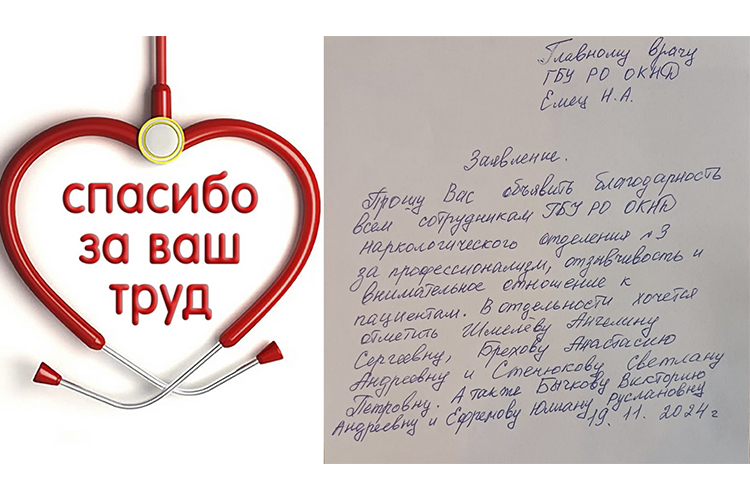 спасибо
за ваш
труд
Главному врачу
ГБУ РО ОКНД
Емец Н.А.
Заявление.
Прошу Вас объявить благодарность
всем сотрудникам ГБУ РО ОКНД
наркологического отделения №3
за профессионализм, отзывчивость и
внимательное отношение к
пациентам. В отдельности хочется
отметить Шмелёву Ангелину
Сергеевну, Брехову Анастасию
Андреевну и Стенюкову Светлану
Петровну. А также Бычкову Викторию
Андреевну и Ефремову Юлиану Руслановну
19.11.2024г